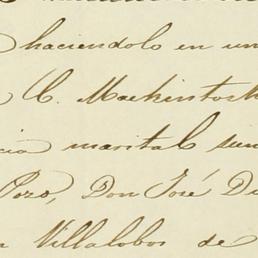 haciendolo en un
C. Mackintosh
cia marital sien
Pozo, Don José Di
Villalobos de